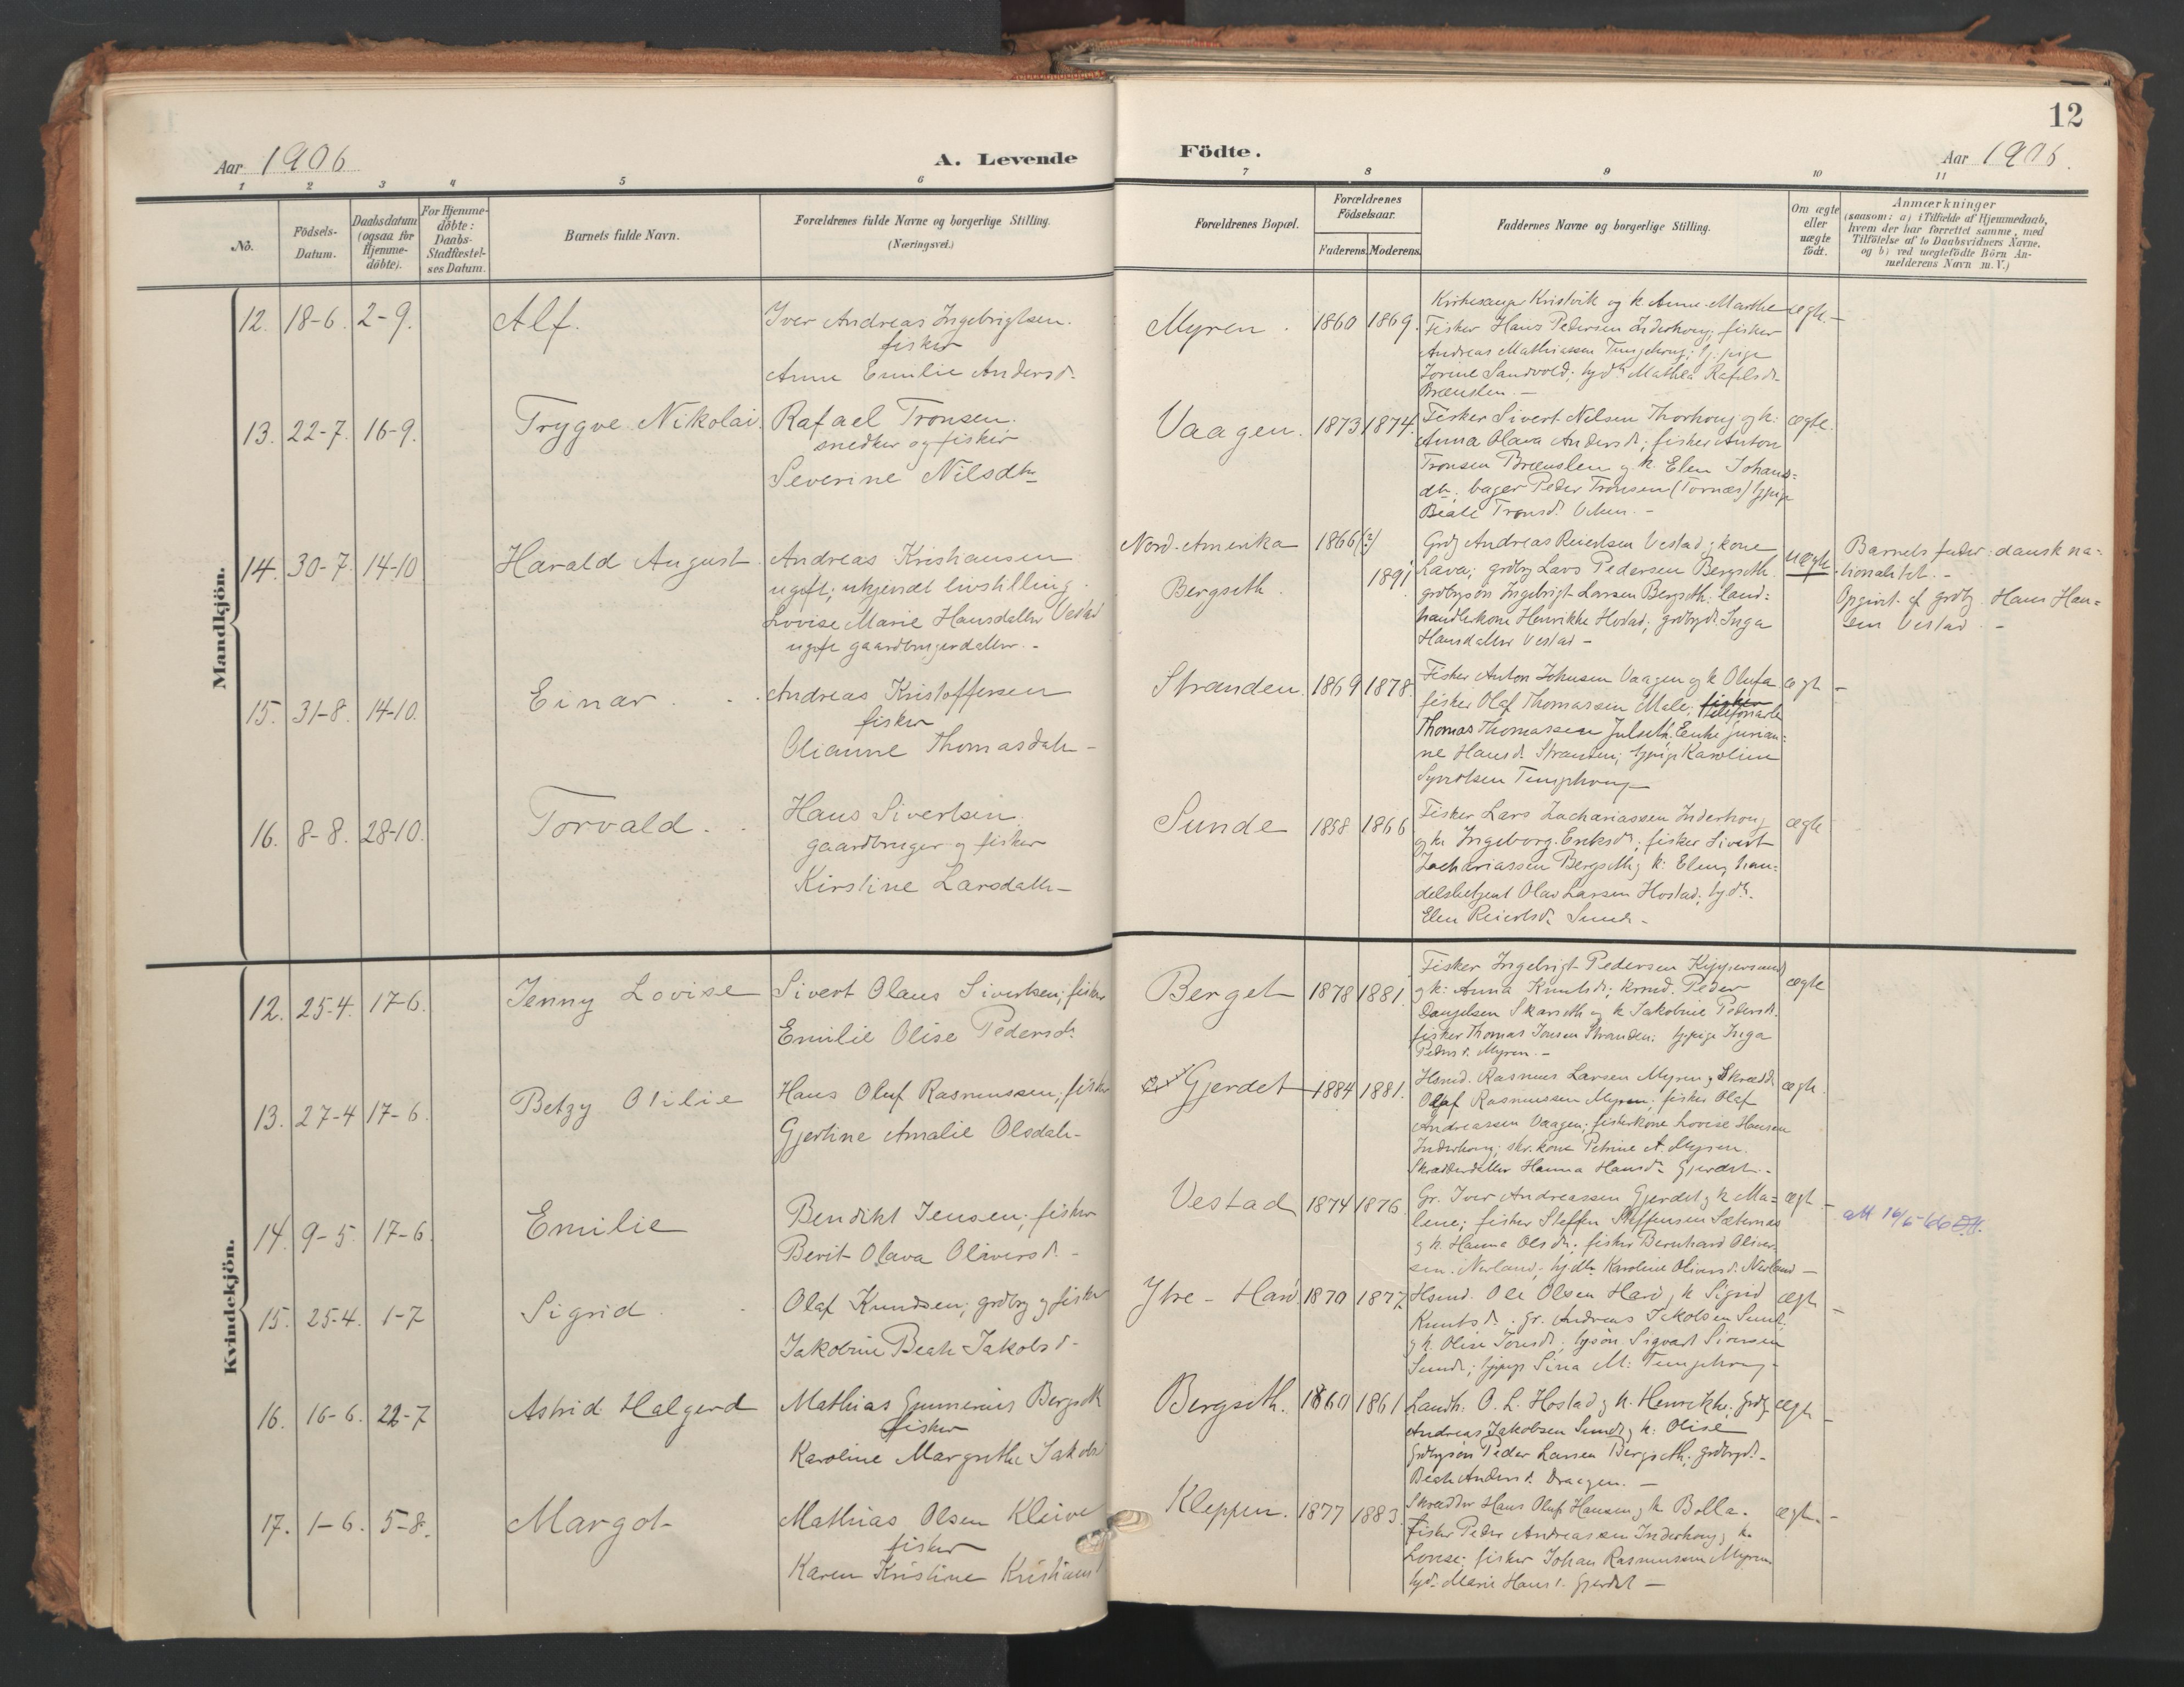 12
Aar 1906
A. Levende
Födte.
Aar 1906.
1 2 3 4 5 6 7 8 9 10 11
No.
Födsels-
Datum.
Daabsdatum
(ogsaa for
Hjemme-
döbte).
For Hjemme-
döbte:
Daabs-
Stadfæstel-
ses Datum.
Barnets fulde Navn.
Forældrenes fulde Navne og borgerlige Stilling.
(Næringsvei.)
Forældrenes Bopæl.
Forældrenes
Födselsaar.
Faderens. Moderens.
Faddernes Navne og borgerlige Stilling.
Om ægte
eller
uægte
födt.
Anmærkninger
(saasom: a) i Tilfælde af Hjemmedaab,
hvem der har forrettet samme, med
Tilföielse af to Daabsvidners Navne,
og b) ved uægtefödte Börn An-
melderens Navn m. V.)
Mandkjön.
12. 18-6. 2-9. Alf.
Iver Andreas Ingebrigtsen.
fisker
Anne Emilie Andersd.
Myren. 1860 1869.
Kirkesanger Kristvik og k. Anne Marthe
Fisker Hans Pedersen Inderhoug; fisker
Andreas Mathiassen Tungehoug; tj. pige
Jorine Sandvold; tyd. Mathea Rafelsd.
Brænslen. -
ægte. -
13. 22-7. 16-9. Trygve Nikolai.
Rafael Tronsen.
snedker og fisker
Severine Nilsdtr
Vaagen. 1873 1874.
Fisker Sivert Nilsen Thorhoug og k.
Anna Olava Andersd.; fisker Anton
Tronsen Brænslen og k. Elen Johans=
dtr; bager Peder Tronsen (Tornæs) tjpige
Beate Tronsd.
ægte.
14. 30-7. 14-10. Harald August
Andreas Kristiansen
ugift; ukjendt livsstilling.
Lovise Marie Hansdatter Vestad
ugift gaardbrugerdatter. -
Nord-Amerika 1866(?)
Bergseth. 1891
Grdbr Andreas Reiertsen Vestad og kone
Lava; grdbrg Lars Pedersen Bergseth
grdbrgsøn Ingebrigt Larsen Bergseth. land=
handlerkone Henrikke Hostad; grdbrgd. Inga
Hansdatter Vestad -
uægte
Barnets fader: dansk na=
tionalitet. -
Opgivet af grdbrg. Hans Han=
sen Vestad. -
15. 31-8. 14-10. Einar.
Andreas Kristoffersen
fisker
Olianne Thomasdatr -
Stranden. 1869 1878.
Fisker Anton Johnsen Vaagen og k Olufa
fisker Olaf Thomassen Male; fisker
Thomas Thomassen Julseth. Enke Jorian=
ne Hansd. Stranden; tjpige Karoline
Syvertsen Tungehoug -
ægte -
16. 8-8. 28-10. Torvald.
Hans Sivertsen.
gaardbruger og fisker
Kirstine Larsdatr -
Sunde 1858 1866
Fisker Lars Zachariassen Inderhoug
og k. Ingeborg Eriksd.; fisker Sivert
Zachariassen Bergseth og k. Elen; han=
delsbetjent Olav Larsen Hostad; tyd.
Elen Reiertsd. Sunde -
ægte
Kvindekjön.
12. 25-4. 17-6. Jenny Lovise
Sivert Olaus Sivertsen; fisker
Emilie Olise Pedersd.
Berget 1878 1881.
Fisker Ingebrigt Pedersen Kippersund
og k. Anna Knutsd.; Peder
Danjelsen Skarseth og k Jakobine Pedersd.
fisker Thomas Jonsen Stranden. tjpige Inga
Pedersd. Myren. -
ægte
13. 27-4 17-6. Betzy Otilie
Hans Oluf Rasmussen; fisker
Gjertine Amalie Olsdatr-
Gjerdet 1884 1881.
Husmd. Rasmus Larsen Myren og Skrædd.
Olaf Rasmussen Myren; fisker Olaf
Andreassen Vaagen; fiskerkone Lovise Hansen
Inderhoug; skr. kone Petrine A. Myren.
Skrædderdatter Hanna Hansd. Gjerdet. -
ægte.
14. 9-5. 17-6. Emilie
Bendikt Jensen; fisker
Berit Olava Oliversd. -
Vestad 1874 1876.
Gr. Iver Andreassen Gjerdet og k Ma=
lene; fisker Steffen Steffensen Sæternes
og k. Hanna Olsdtr; fisker Bernhard Oliver-
sen. Nerland; tydtr Karoline Oliversd. Nerland -
ægte -
att 16/5-66
15. 25-4. 1-7 Sigrid
Olaf Knudsen; grdbrg og fisker
Jakobine Beate Jakobsd.
Ytre-Harø 1870 1877.
Husmd. Ole Olsen Harø, k Sigrid
Knutsd.; gr. Andreas Jakobsen Sunde
og k. Olise Jonsd.; tysøn Sigvart Siversen
Sunde; tjpige Sina M. Tungehoug -
ægte -
16. 16-6. 22-7 Astrid Halgerd
Mathias Gunnerius Bergseth
fisker
Karoline Margrethe Jakobsd
Bergseth. 1860 1861
Landh. O. L. Hostad og k. Henrikke; grdbr
Andreas Jakobsen Sunde og k: Olise
Grdbrgsøn Peder Larsen Bergseth; grdbrgd. -
Beate Andersd. Draagen. -
ægte -
17. 1-6. 5-8. Margot
Mathias Olsen Kleive
fisker
Karen Kristine Kristiansd
Kleppen. 1877 1883.
Skrædder Hans Oluf Hansen og k Bolla.
Fisker Peder Andreassen Inderhoug, k.
Lovise; fisker Johan Rasmussen Myren
tyd. Marie Hansd. Gjerdet -
ægte. -